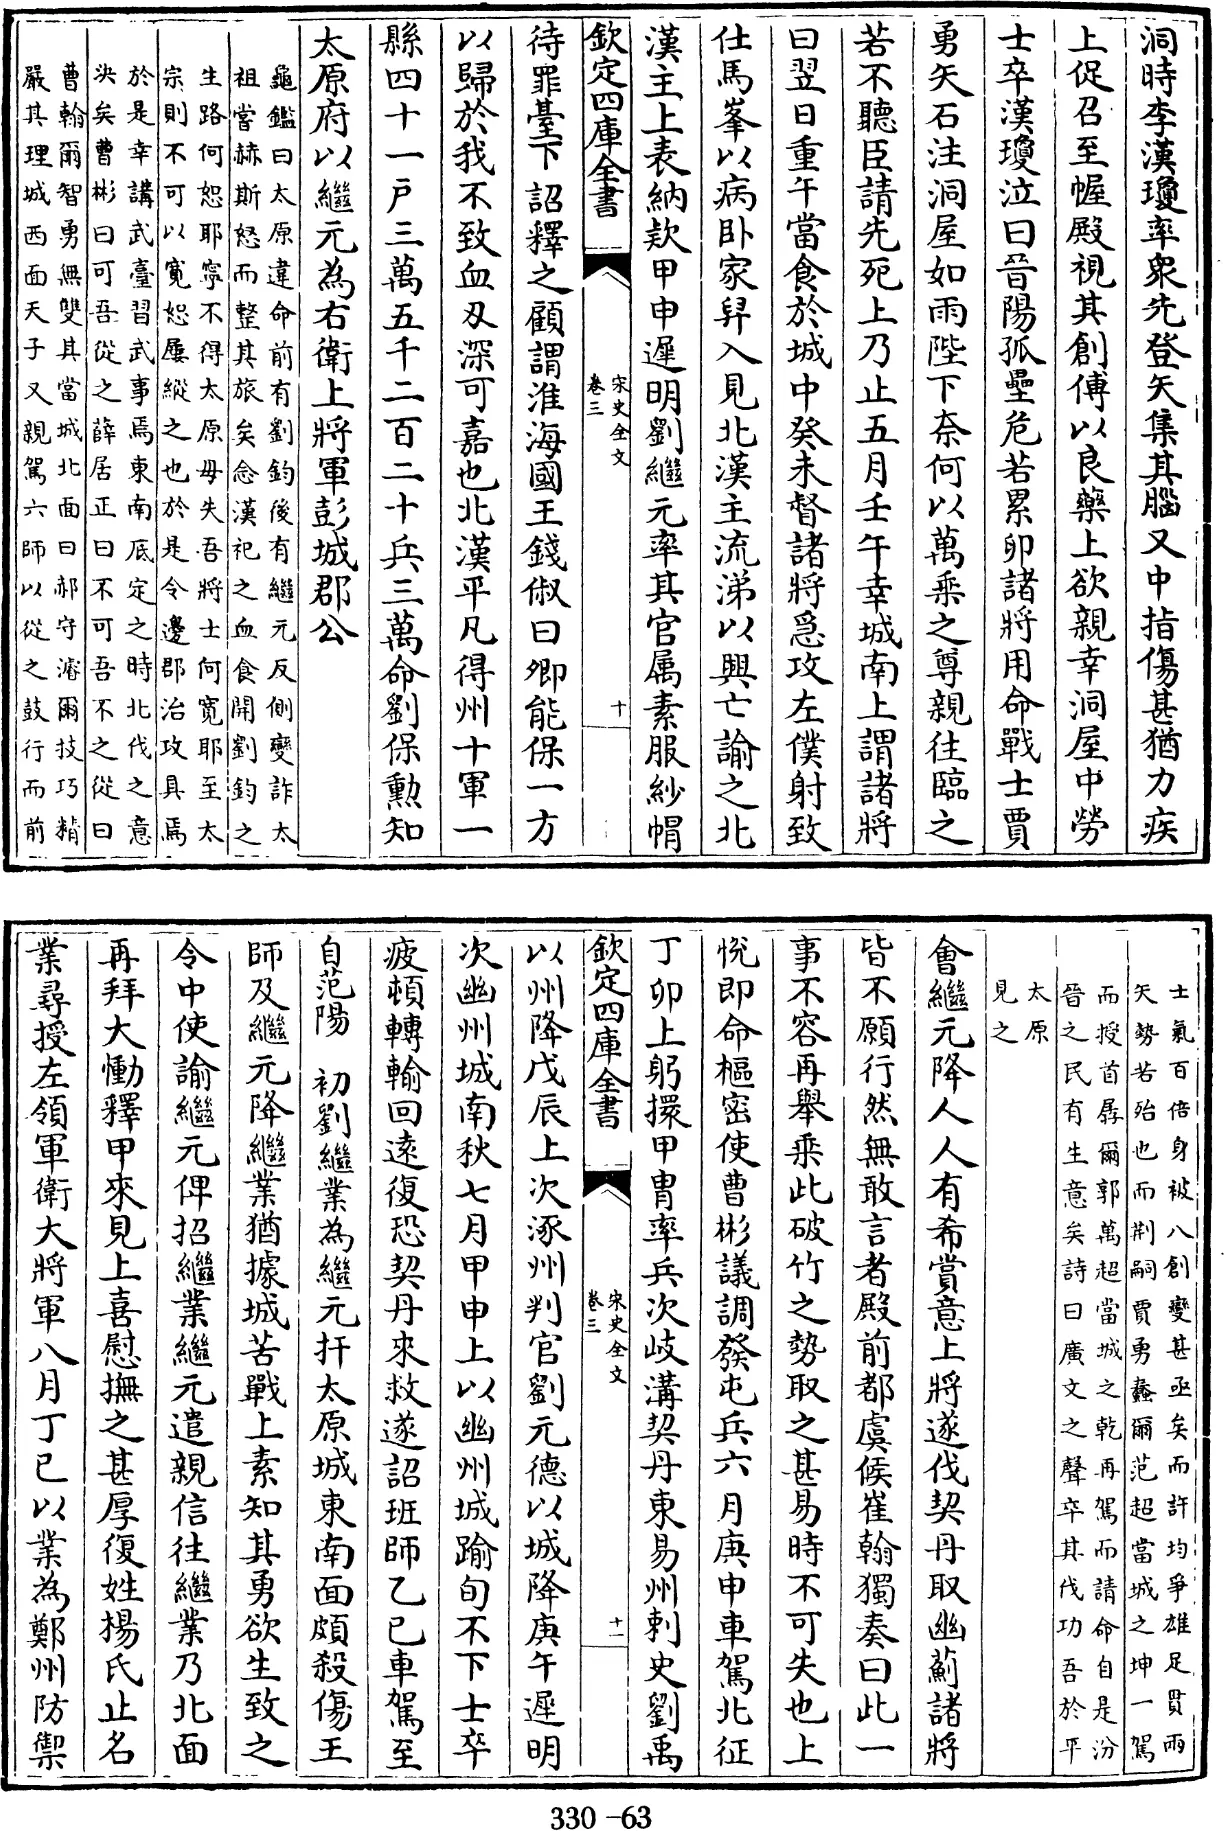 洞時李漢瓊率衆先登矢集其腦又中指傷甚猶力疾
上促召至幄殿視其創傅以良藥上欲親幸洞屋中勞
士卒漢瓊泣曰晉陽孤壘危若累卵諸將用命戰士賈
勇矢石注洞屋如雨陛下奈何以萬乗之尊親往臨之
若不聽臣請先死上乃止五月壬午幸城南上謂諸將
曰翌日重午當食於城中癸未督諸將急攻左僕射致
仕馬峯以病卧家舁入見北漢主流涕以興亡諭之北
漢主上表納欵甲申遲明劉繼元率其官属素服紗帽
欽定四庫全書
宋史全文
卷三
十
待罪臺下詔釋之顧謂淮海國王錢俶曰卿能保一方
以歸於我不致血刃深可嘉也北漢平凡得州十軍一
縣四十一戸三萬五千二百二十兵三萬命劉保勲知
太原府以繼元為右衛上將軍彭城郡公
龜鑑曰太原違命前有劉鈞後有繼元反側變詐太
祖嘗赫斯怒而整其旅矣念漢祀之血食開劉鈞之
生路何恕耶寧不得太原毋失吾將士何寛耶至太
宗則不可以寛恕屢縱之也於是令邊郡治攻具焉
於是幸講武臺習武事焉東南底定之時北伐之意
决矣曹彬曰可吾從之薛居正曰不可吾不之從曰
曹翰爾智勇無雙其當城北面曰郝守濬爾技巧精
嚴其理城西面天子又親駕六師以從之鼓行而前
士氣百倍身被八創變甚亟矣而許均爭雄足貫兩
矢勢若殆也而荆嗣賈勇蠢爾范超當城之坤一駕
而授首孱爾郭萬超當城之乾再駕而請命自是汾
晉之民有生意矣詩曰廣文之聲卒其伐功吾於平
太原
見之
會繼元降人人有希賞意上將遂伐契丹取幽薊諸將
皆不願行然無敢言者殿前都虞候崔翰獨奏曰此一
事不容再舉乗此破竹之勢取之甚易時不可失也上
悅即命樞密使曹彬議調發屯兵六月庚申車駕北征
丁卯上躬擐甲冑率兵次岐溝契丹東易州刺史劉禹
欽定四庫全書
宋史全文
卷三
十一
以州降戊辰上次涿州判官劉元德以城降庚午遲明
次幽州城南秋七月甲申上以幽州城踰旬不下士卒
疲頓轉輸回逺復恐契丹來救遂詔班師乙巳車駕至
自范陽　初劉繼業為繼元扞太原城東南面頗殺傷王
師及繼元降繼業猶據城苦戰上素知其勇欲生致之
令中使諭繼元俾招繼業繼元遣親信往繼業乃北面
再拜大慟釋甲來見上喜慰撫之甚厚復姓楊氏止名
業尋授左領軍衛大將軍八月丁巳以業為鄭州防禦
330-63